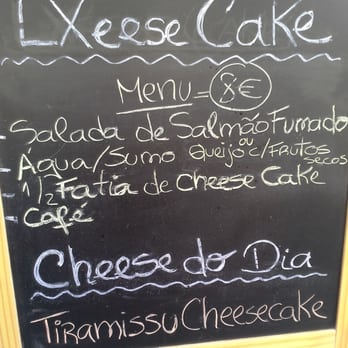 LXeese Cake
Menu = 8€
- Salada de Salmão Fumado
ou
- Água/Sumo Queijo c/Frutos
secos
- 1/2 Fatia de Cheese Cake
- Café
Cheese do Dia
Tiramissu Cheesecake